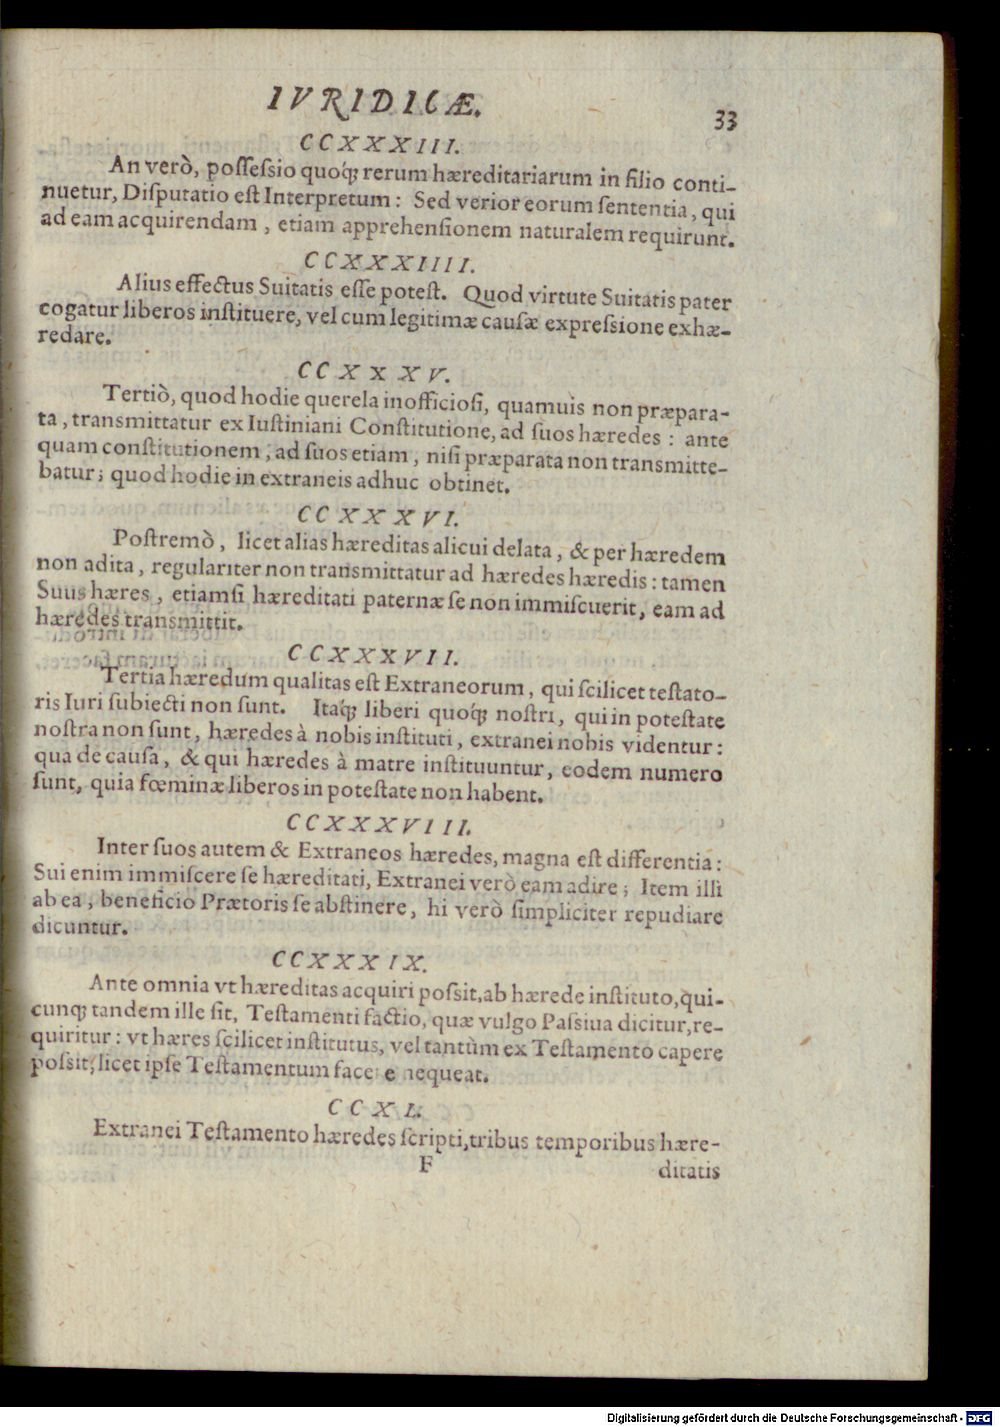 IVRIDICÆ.
33
CCXXXIII.
An verò, poſſeſsio quoq́; rerum hæreditariarum in filio conti-
nuetur, Diſputatio eſt Interpretum: Sed verior eorum ſententia, qui
ad eam acquirendam, etiam apprehenſionem naturalem requirunt.
CCXXXIIII.
Alius effectus Suitatis eſſe poteſt. Quod virtute Suitatis pater
cogatur liberos inſtituere, vel cum legitimæ cauſæ expreſsione exhæ-
redare.
CCXXXV.
Tertiò, quod hodie querela inofficioſi, quamuis non præpara-
ta, transmittatur ex Iuſtiniani Conſtitutione, ad ſuos hæredes: ante
quam conſtitutionem, ad ſuos etiam, niſi præparata non transmitte-
batur; quod hodie in extraneis adhuc obtinet.
CCXXXVI.
Poſtremò, licet alias hæreditas alicui delata, & per hæredem
non adita, regulariter non transmittatur ad hæredes hæredis: tamen
Suus hæres, etiamſi hæreditati paternæ ſe non immiſcuerit, eam ad
hæredes transmittit.
CCXXXVII.
Tertia hæredum qualitas eſt Extraneorum, qui ſcilicet teſtato-
ris Iuri ſubiecti non ſunt. Itaq́; liberi quoq́; noſtri, qui in poteſtate
noſtra non ſunt, hæredes à nobis inſtituti, extranei nobis videntur:
qua de cauſa, & qui hæredes à matre inſtituuntur, eodem numero
ſunt, quia fœminæ liberos in poteſtate non habent.
CCXXXVIII.
Inter ſuos autem & Extraneos hæredes, magna eſt differentia:
Sui enim immiſcere ſe hæreditati, Extranei verò eam adire; Item illi
ab ea, beneficio Prætoris ſe abſtinere, hi verò ſimpliciter repudiare
dicuntur.
CCXXXIX.
Ante omnia vt hæreditas acquiri poſsit, ab hærede inſtituto, qui-
cunq; tandem ille ſit, Teſtamenti factio, quæ vulgo Paſsiua dicitur, re-
quiritur: vt hæres ſcilicet inſtitutus, vel tantùm ex Teſtamento capere
poſsit, licet ipſe Teſtamentum facere nequeat.
CCXL.
Extranei Teſtamento hæredes ſcripti, tribus temporibus hære-
F
ditatis
Digitalisierung gefördert durch die Deutsche Forschungsgemeinschaft - DFG